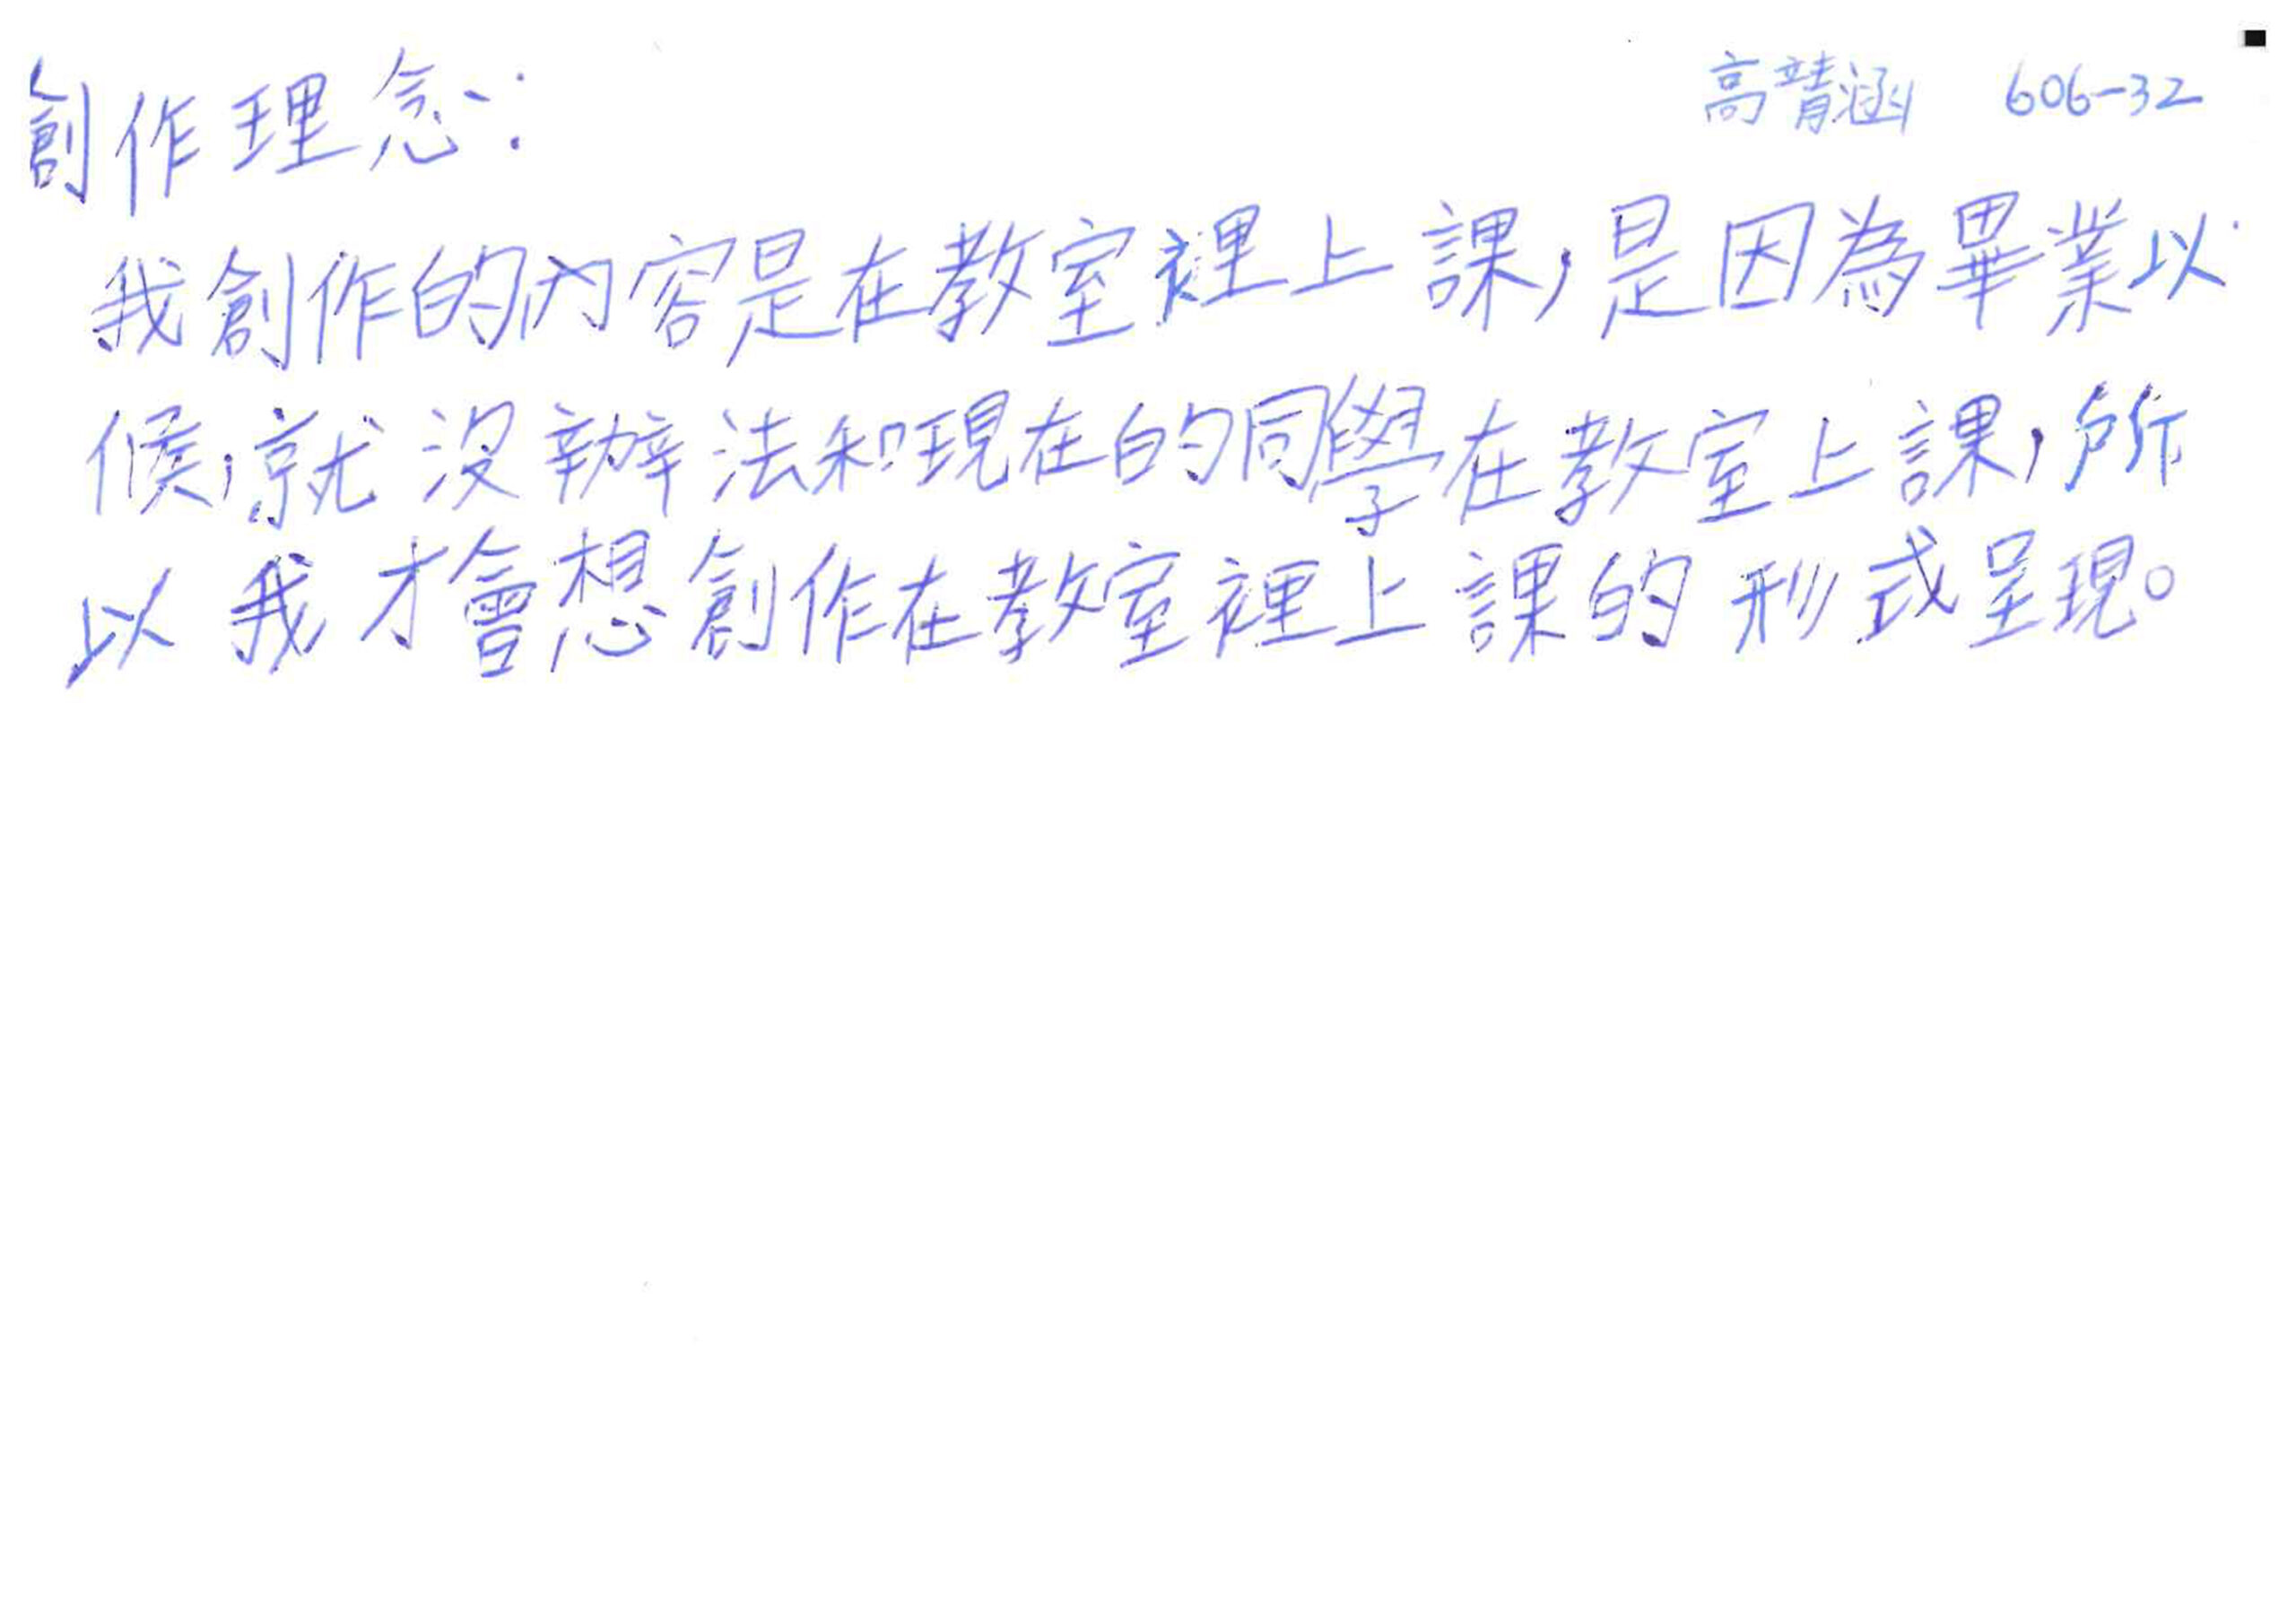 創作理念：
高菁涵 606-32
我創作的內容是在教室裡上課，是因為畢業以
候，就沒辦法和現在的同學在教室上課，所
以我才會想創作在教室裡上課的形式呈現。